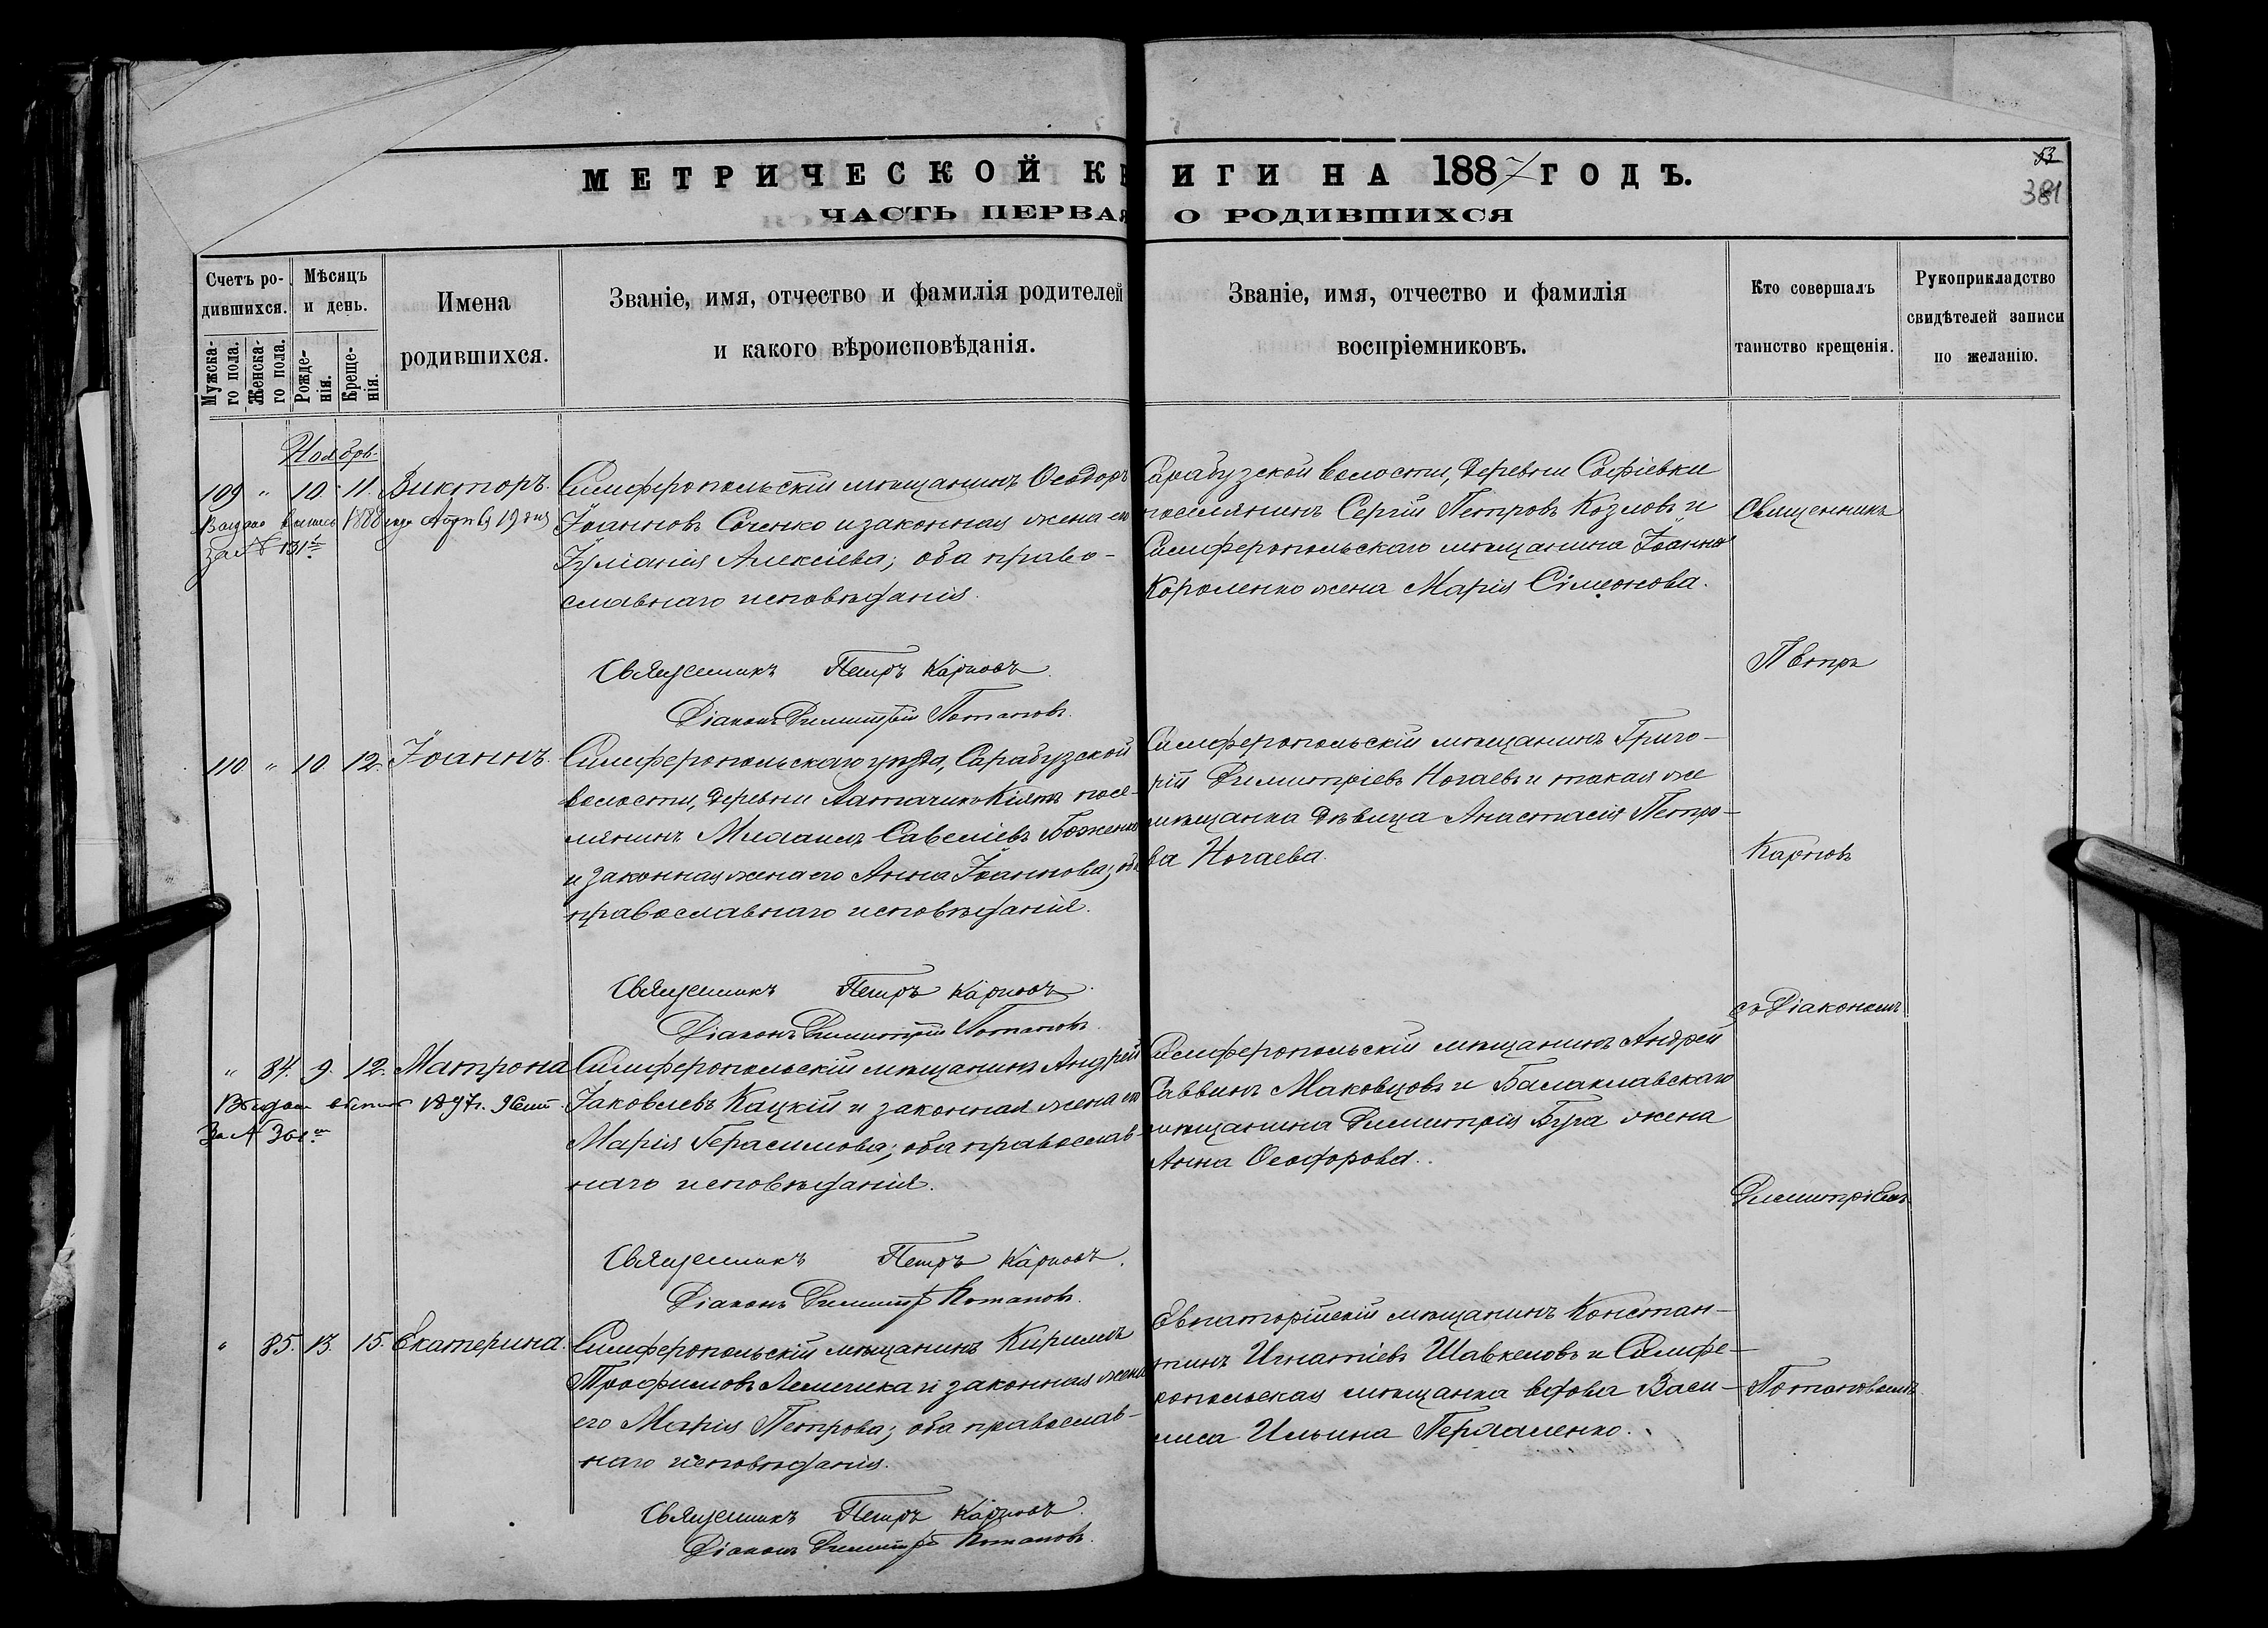 МЕТРИЧЕСКОЙ КНИГИ НА 1887 ГОДЪ.
ЧАСТЬ ПЕРВАЯ О РОДИВШИХСЯ
53
381
Счетъ ро-
дившихся.
Мужска-
го пола.
Женска-
го пола.
Мѣсяцъ
и день.
Рожде-
нія.
Креще-
нія.
Имена
родившихся.
Званіе, имя, отчество и фамилія родителей
и какого вѣроисповѣданія.
Званіе, имя, отчество и фамилія
воспріемниковъ.
Кто совершалъ
таинство крещенія.
Рукоприкладство
свидѣтелей записи
по желанію.
Ноябрь.
109 " 10. 11. Викторъ.
Выдана выпись 1888 года Апрѣля 19 дня
За № 131
Симферопольскій мѣщанинъ Ѳеодоръ
Іоанновъ Соченко и законная жена его
Іуліанія Алексіева; оба право-
славнаго исповѣданія.
Сарабузской волости, деревни Софіевки
поселянинъ Сергій Петровъ Козловъ и
Симферопольскаго мѣщанина Іоанна
Короленко жена Марія Сімеонова.
Священникъ Петръ Карповъ.
Діаконъ Димитрій Потаповъ.
110 " 10. 12. Іоаннъ.
Симферопольскаго уѣзда, Сарабузской
волости, деревни Кіятъ посе-
лянинъ Михаилъ Савеліевъ
и законная жена его Анна Іоаннова; оба
православнаго исповѣданія.
Симферопольскій мѣщанинъ Григо-
рій Димитріевъ Ногаевъ и такая же
мѣщанка дѣвица Анастасія Петро-
ва Ногаева.
Священникъ Петръ Карповъ.
Діаконъ Димитрій Потаповъ.
" 84. 9. 12. Матрона
Выдана выпись 1897 г. Сент.
За № 361
Симферопольскій мѣщанинъ Андрей
Іаковлевъ Кацкій и законная жена его
Марія Герасимова; оба православ-
наго исповѣданія.
Симферопольскій мѣщанинъ Андрей
Саввинъ Маковцовъ и Балаклавскаго
мѣщанина Димитрія Буга жена
Анна Ѳеодорова.
Священникъ Петръ Карповъ.
Діаконъ Димитр Потаповъ.
" 85. 13. 15. Екатерина.
Симферопольскій мѣщанинъ Кириллъ
Трофимовъ и законная жена
его Марія Петрова; оба православ-
наго исповѣданія.
Евпаторійскій мѣщанинъ Констан-
тинъ Игнатіевъ Шавкеловъ и Симфе-
ропольская мѣщанка вдова Васи-
лиса Ильина
Священникъ Петръ Карповъ.
Діаконъ Димитрій Потаповъ.
Священникъ
Петръ
Карповъ
съ Діакономъ
Димитріемъ
Потаповымъ